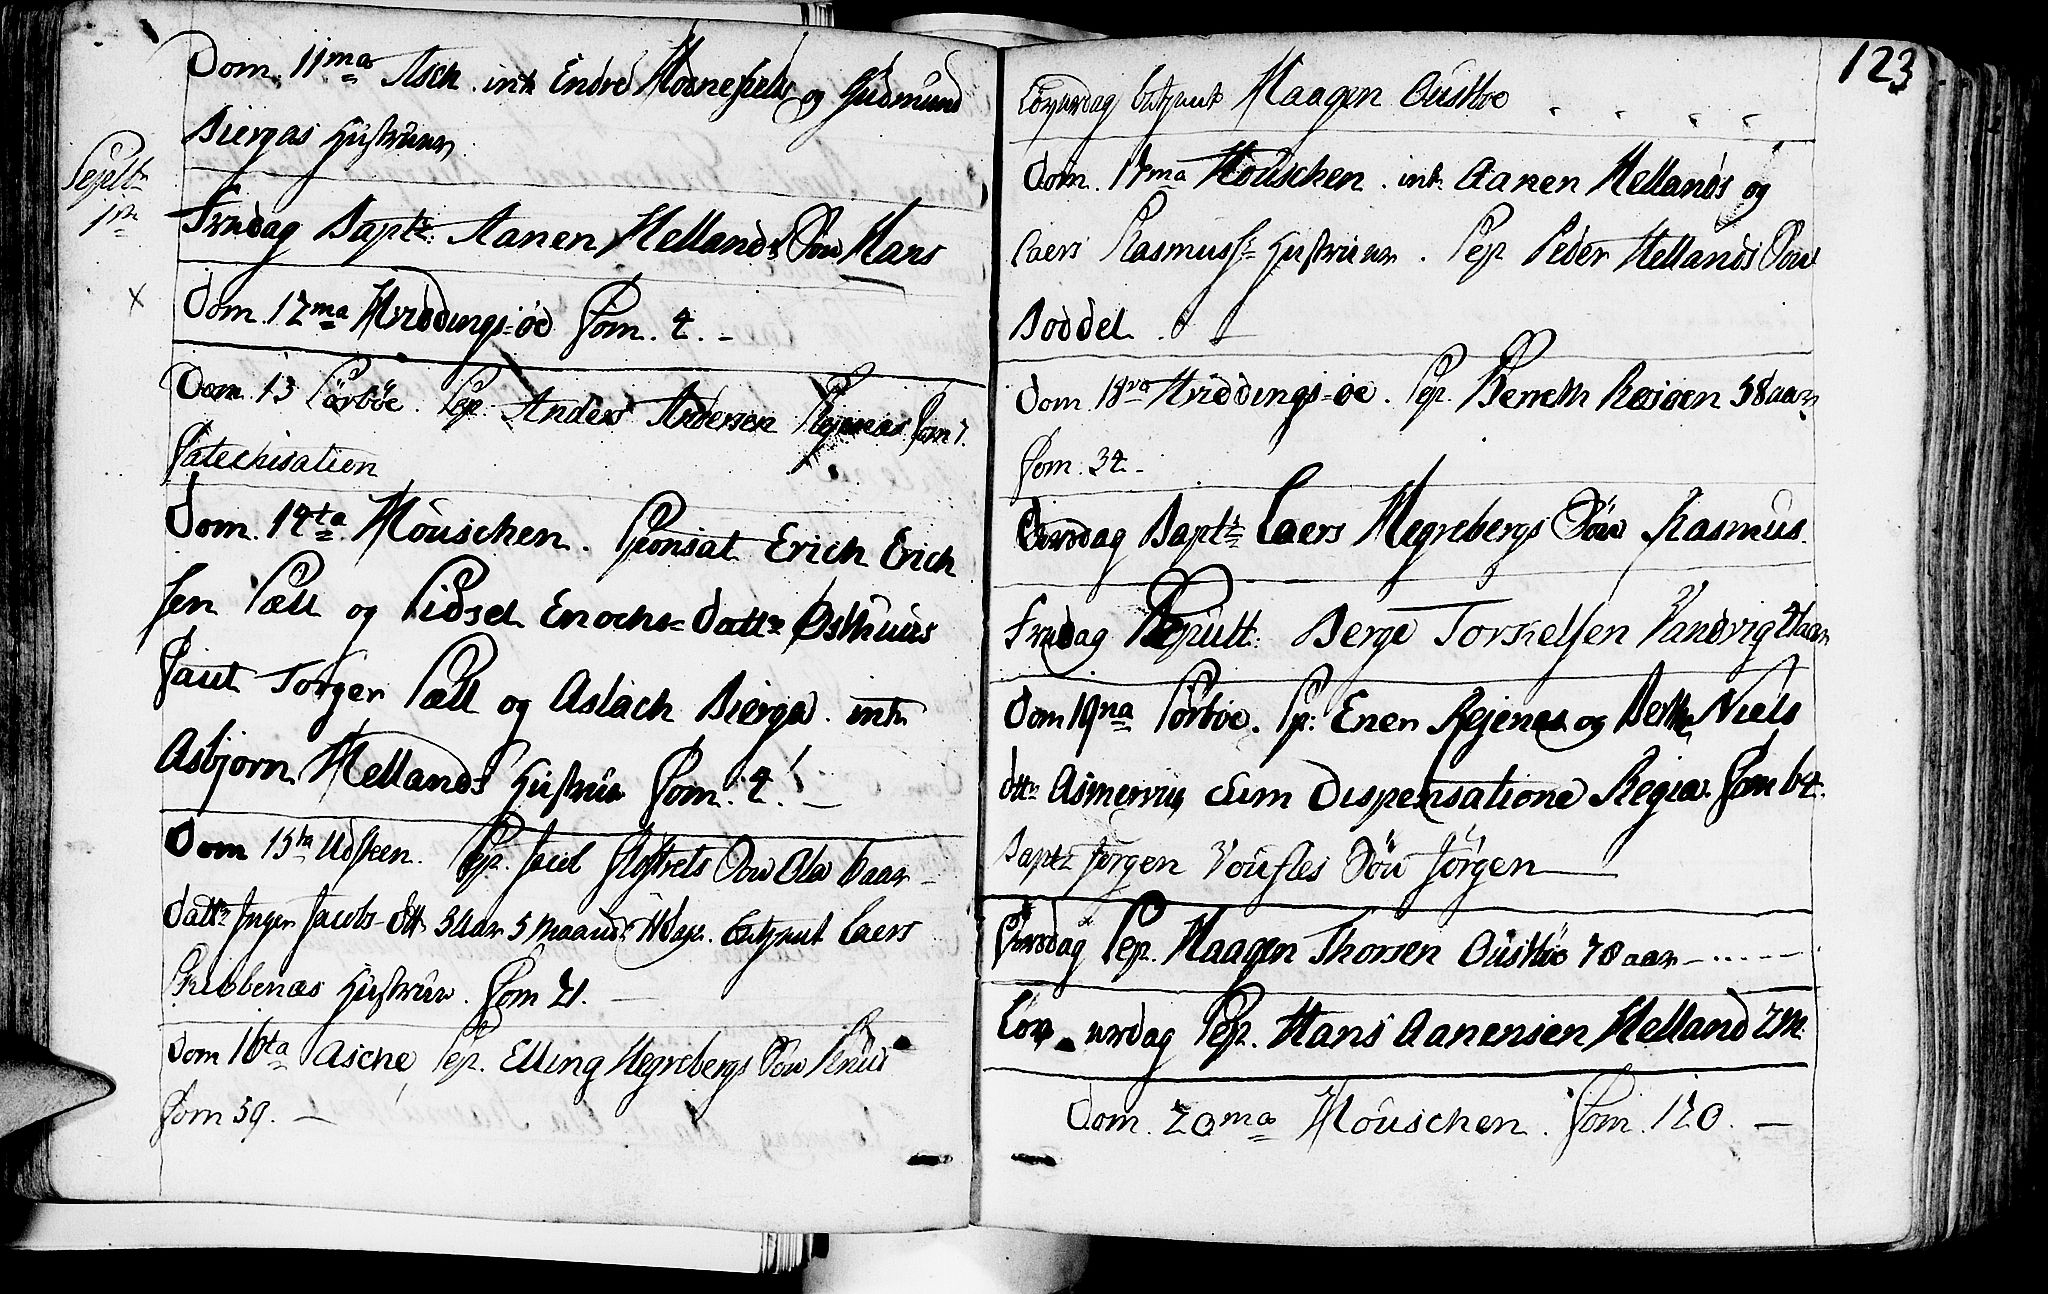 Dom. 11ma Asch. intr Endre Hornefields og Gudmund
Biergas Hustruer
Septbr
1ste
Fredag Bapt: Aanen Hellands Søn Hans
x
Dom. 12ma Hviddings-öe Com. 4. -
Dom. 13 Sörböe. Sep. Anders Andersen Com 7.
Catechisation
Dom. 14ta Houschen. Sponsat Erich Erich
sen Sæll og Sidsel Enochs-Dattr Østhuus
Caut Torger Sæll og Aslach Bierga. intr
Asbjorn Hellands Hustrue Com. 4. -
Dom 15ta Udsteen. Sep. Søn Ola 6 aar
Dattr Inger Jacobs-Dtt 3 Aar 5 Maander Laers
Hustrue. Com 21. -
Dom 16ta Asche Sep. Elling Hegrebergs Søn Knud
Com 59. -
123
Løverdag Haagen Austbøe
Dom. 17ma Houschen. intr Aanen Hellands og
Laers Rasmuss: Hustruer. Sep Peder Hellands Søn
Boddel. -
Dom 18va Hviddings-öe. Sep. Bereth 58 aar
Com. 34. -
Bapt: Laers Hegrebergs Søn Rasmus.
Fredag Sepult: Berge Torkelsen Vandvig
Dom 19na Sörböe. Sp: Ener og Berthe Niels
dttr cum Dispensatione Regia. Com 64.
Bapt: Jørgen Søn Jörgen
Sep. Haagen Thorsen Austbøe 78 aar
Løv urdag Sep. Hans Aanensen Helland 2 M.
Dom. 20ma Houschen. Com. 120. -